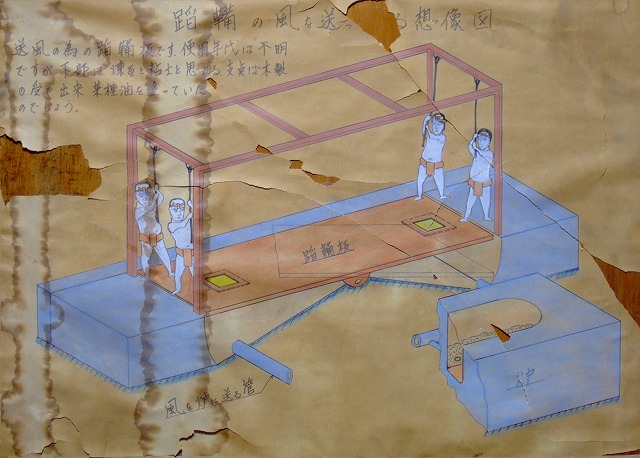 蹈鞴の風を送る想像図
送風の為の蹈鞴板です使用年代は不明
ですが下部は煉瓦と粘土と思われる支点は木製
の台を出来 菜種油を塗っていた
のでしょう.
蹈鞴板
炉
風を炉に送る管